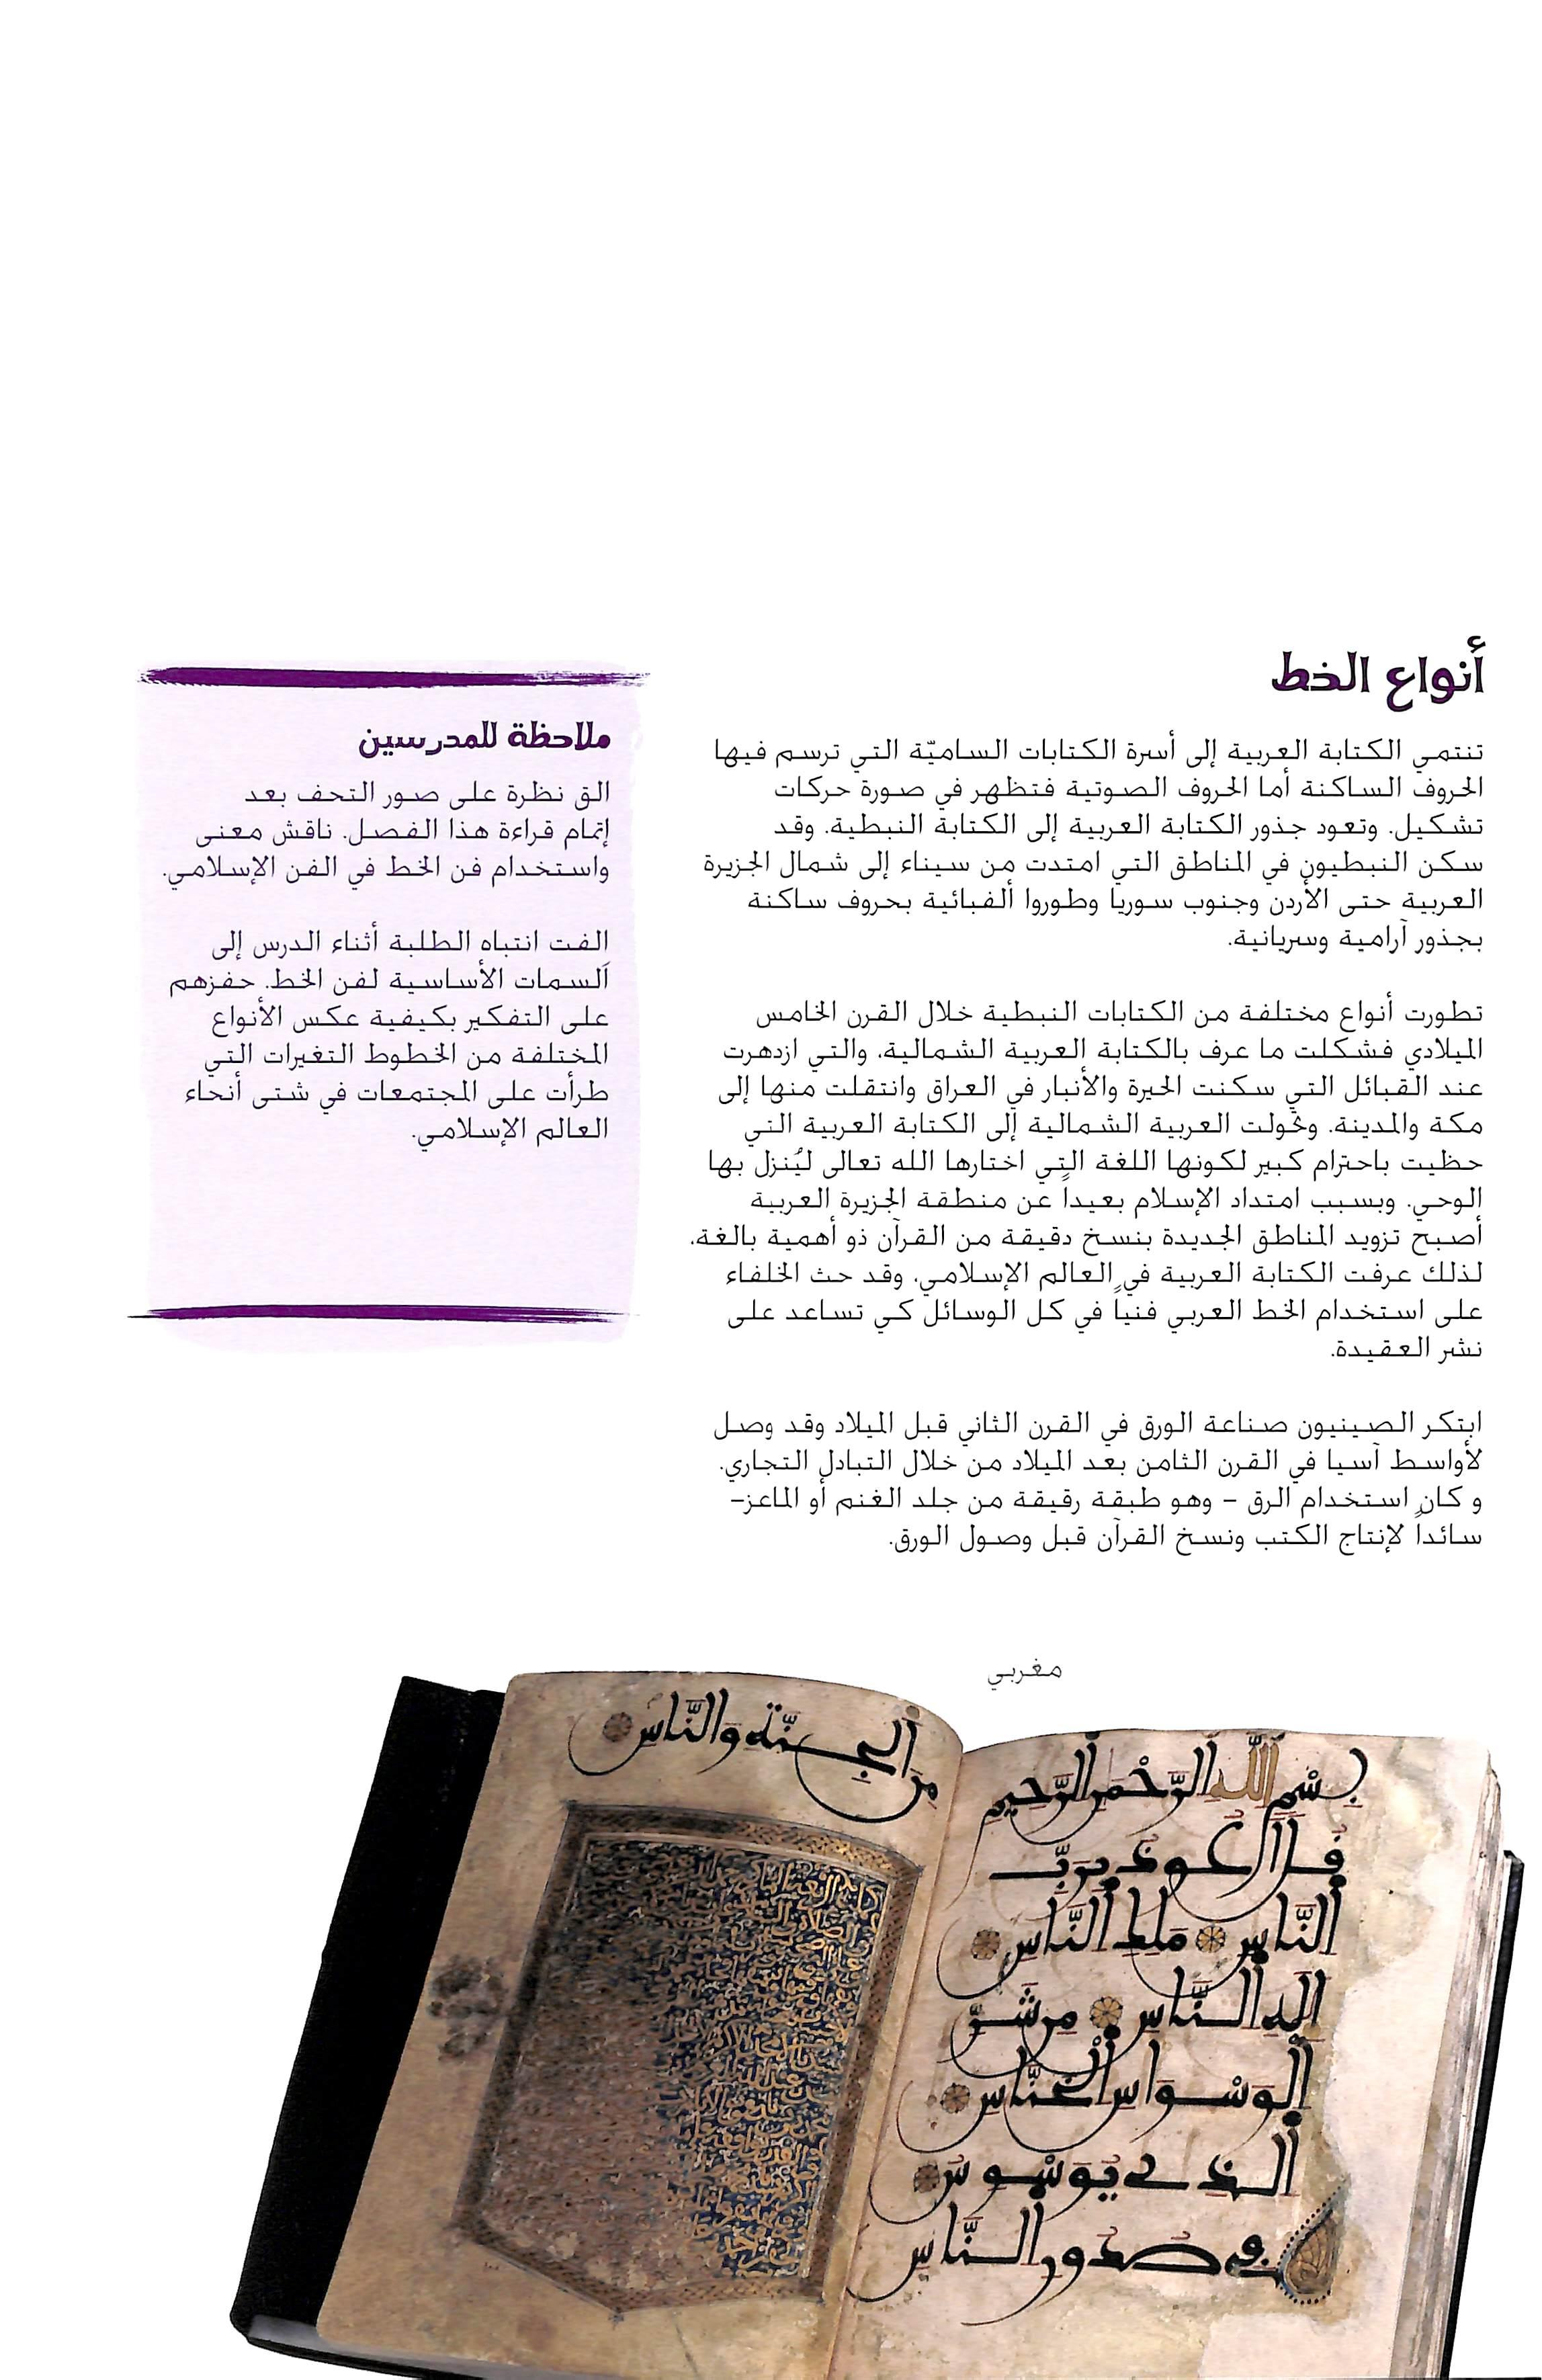 أنواع الخط
تنتمي الكتابة العربية إلى أسرة الكتابات الساميّة التي ترسم فيها
الحروف الساكنة أما الحروف الصوتية فتظهر في صورة حركات
تشكيل. وتعود جذور الكتابة العربية إلى الكتابة النبطية. وقد
سكن النبطيون في المناطق التي امتدت من سيناء إلى شمال الجزيرة
العربية حتى الأردن وجنوب سوريا وطوروا ألفبائية بحروف ساكنة
بجذور آرامية وسريانية.
تطورت أنواع مختلفة من الكتابات النبطية خلال القرن الخامس
الميلادي فشكلت ما عرف بالكتابة العربية الشمالية، والتي ازدهرت
عند القبائل التي سكنت الحيرة والأنبار في العراق وانتقلت منها إلى
مكة والمدينة. وتحولت العربية الشمالية إلى الكتابة العربية التي
حظيت باحترام كبير لكونها اللغة التي اختارها الله تعالى ليُنزل بها
الوحي. وبسبب امتداد الإسلام بعيداً عن منطقة الجزيرة العربية
أصبح تزويد المناطق الجديدة بنسخ دقيقة من القرآن ذو أهمية بالغة،
لذلك عرفت الكتابة العربية في العالم الإسلامي، وقد حث الخلفاء
على استخدام الخط العربي فنياً في كل الوسائل كي تساعد على
نشر العقيدة.
ابتكر الصينيون صناعة الورق في القرن الثاني قبل الميلاد وقد وصل
لأواسط آسيا في القرن الثامن بعد الميلاد من خلال التبادل التجاري.
و كان استخدام الرق – وهو طبقة رقيقة من جلد الغنم أو الماعز–
سائداً لإنتاج الكتب ونسخ القرآن قبل وصول الورق.
ملاحظة للمدرسين
الق نظرة على صور التحف بعد
إتمام قراءة هذا الفصل. ناقش معنى
واستخدام فن الخط في الفن الإسلامي.
الفت انتباه الطلبة أثناء الدرس إلى
السمات الأساسية لفن الخط. حفزهم
على التفكير بكيفية عكس الأنواع
المختلفة من الخطوط التغيرات التي
طرأت على المجتمعات في شتى أنحاء
العالم الإسلامي.
مغربي
بِسْمِ اللَّهِ الرَّحْمٰنِ الرَّحِيمِ
قل أعوذ بربّ
النَّاسِ ملك النَّاسِ
إله النَّاسِ من شَرِّ
الوَسْوَاسِ الخنَّاسِ
الذي يُوَسْوِسُ
في صُدُورِ النَّاسِ
مِنَ الجِنَّةِ وَالنَّاسِ